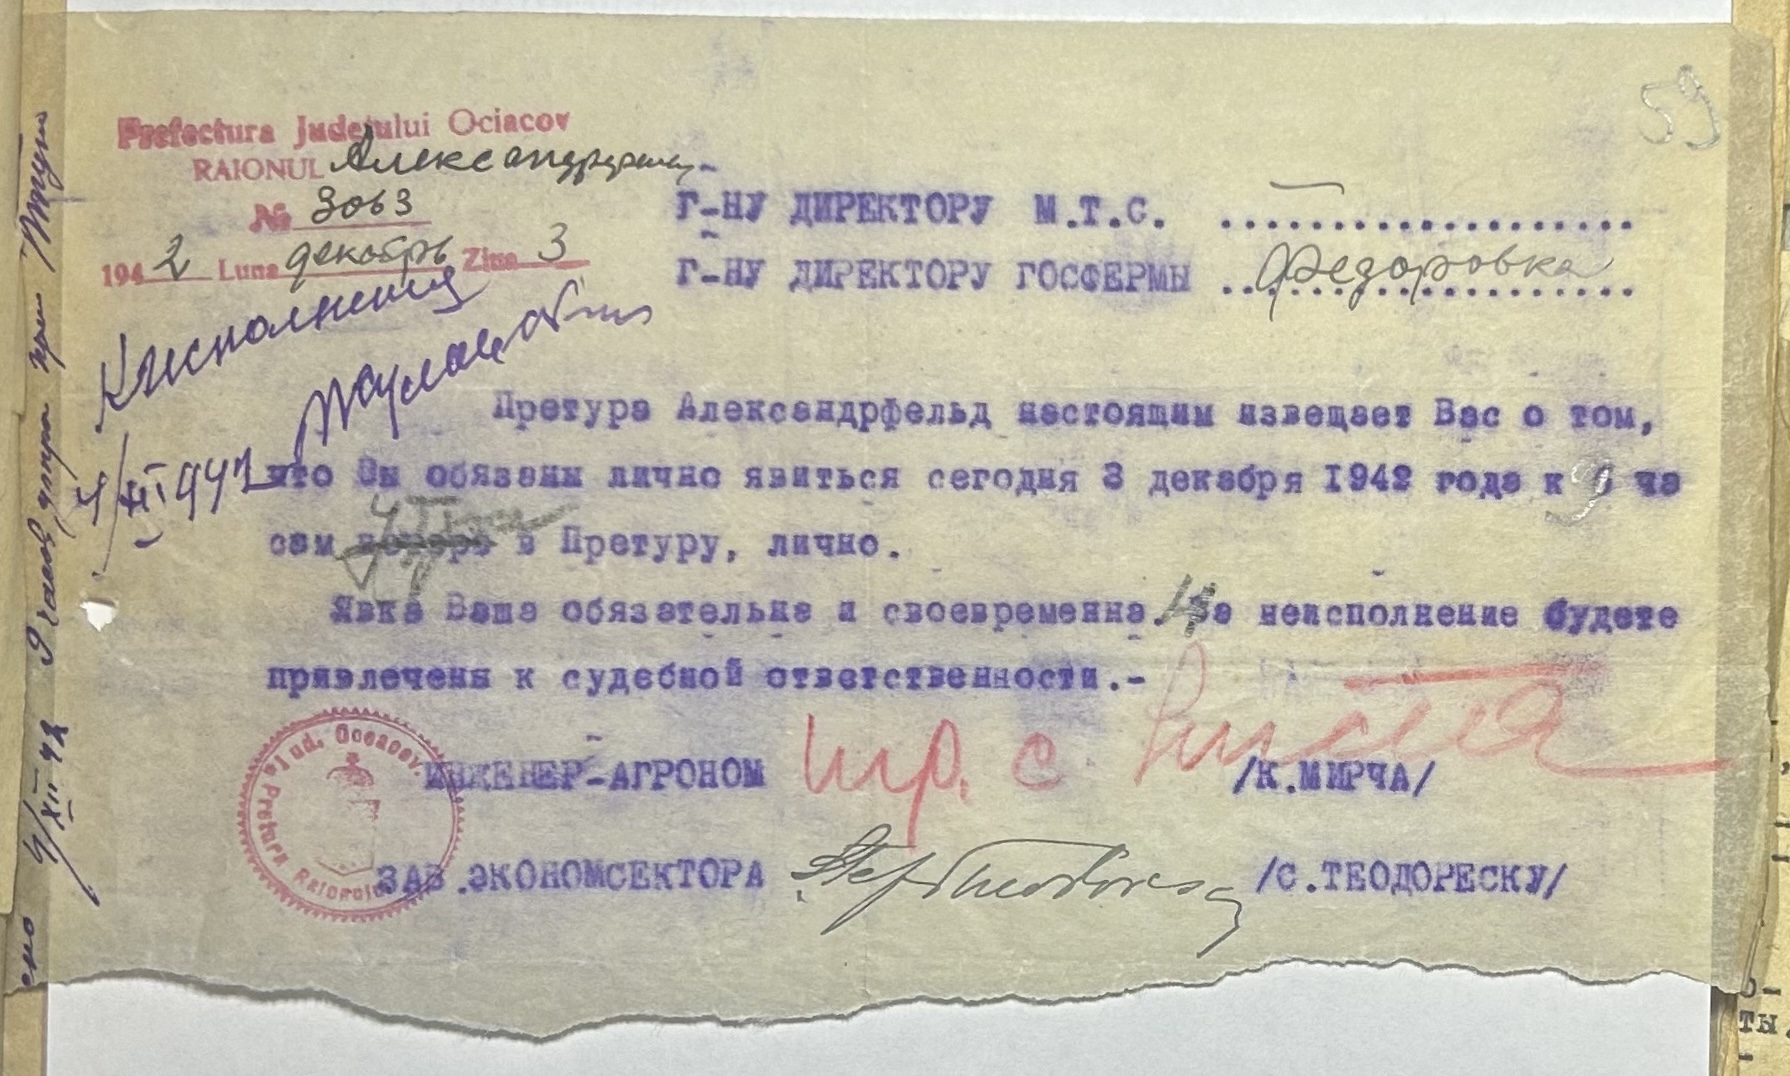 59
Prefectura Județului Ociacov
RAIONUL Александрфельд
№ 3063
1942 Luna декабрь Ziua 3
Г-НУ ДИРЕКТОРУ М.Т.С. ...................
Г-НУ ДИРЕКТОРУ ГОСФЕРМЫ Федоровка
К исполнению
4/XII 942
Претура Александрфельд настоящим извещает Вас о том,
что Вы обязаны лично явиться сегодня 3 декабря 1942 года к 9 ча
сам утра в Претуру, лично.
Явка Ваша обязательна и своевременна. За неисполнение будете
привлечены к судебной ответственности.-
ИНЖЕНЕР-АГРОНОМ /К.МИРЧА/
ЗАВ.ЭКОНОМСЕКТОРА /С.ТЕОДОРЕСКУ/
Jud. Oceacov.
Pretura Raionului
4/XII 42 9 часов утра